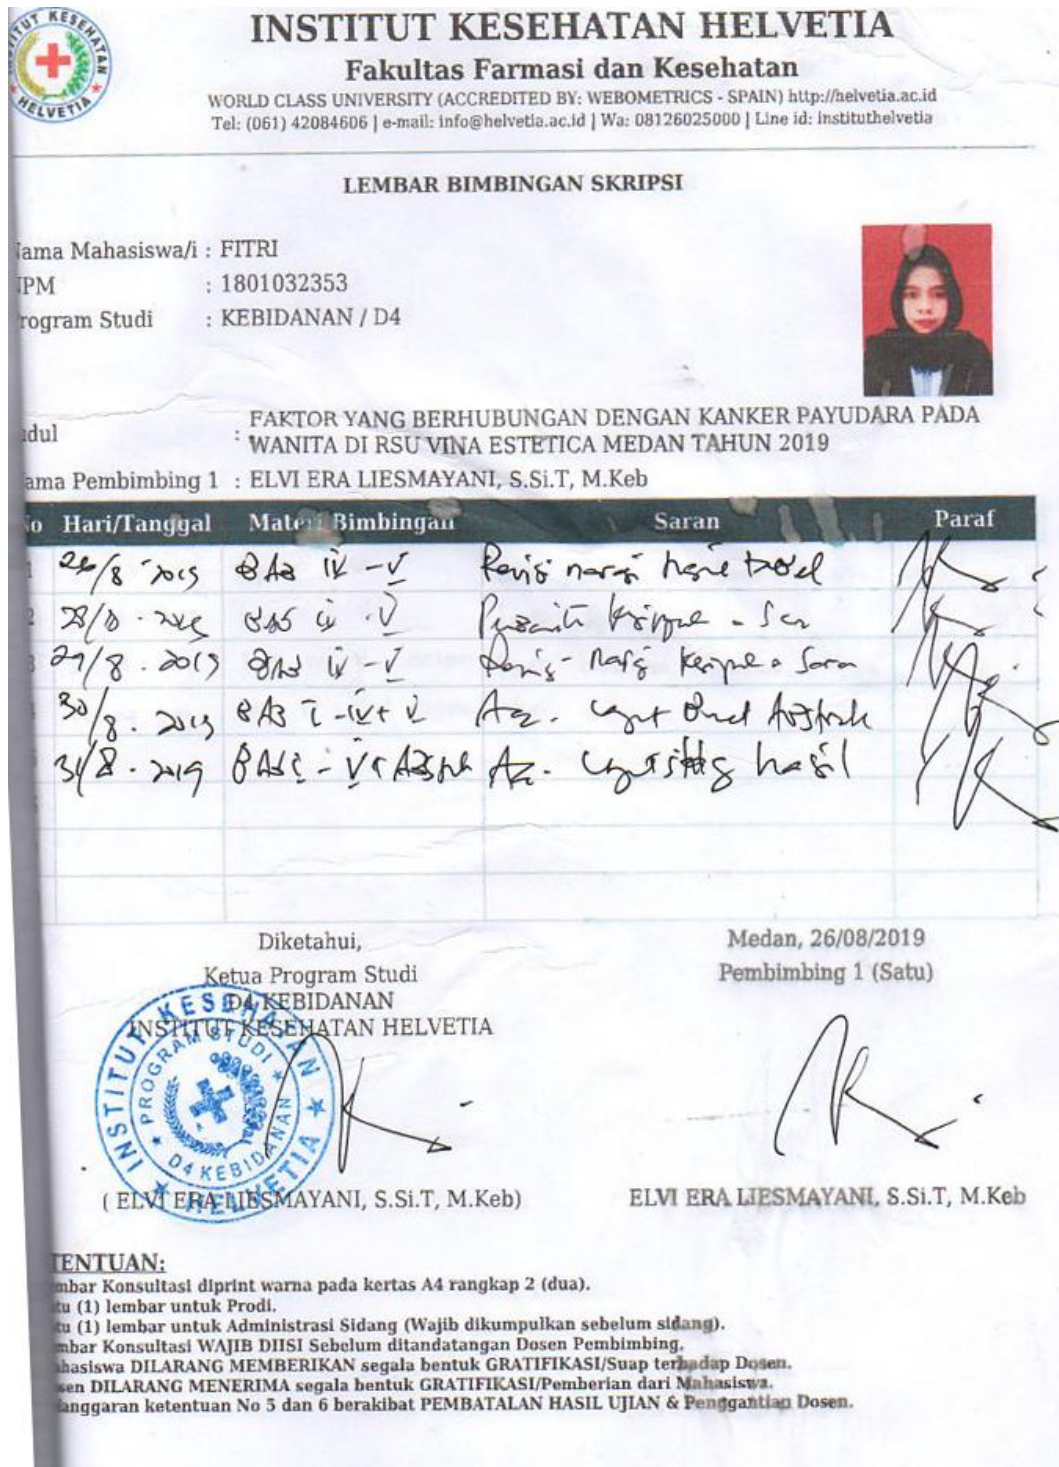 INSTITUT KESEHATAN HELVETIA
Fakultas Farmasi dan Kesehatan
WORLD CLASS UNIVERSITY (ACCREDITED BY: WEBOMETRICS - SPAIN) http://helvetia.ac.id
Tel: (061) 42084606 | e-mail: info@helvetia.ac.id | Wa: 08126025000 | Line id: instituthelvetia
LEMBAR BIMBINGAN SKRIPSI
ama Mahasiswa/i : FITRI
PM : 1801032353
rogram Studi : KEBIDANAN / D4
dul : FAKTOR YANG BERHUBUNGAN DENGAN KANKER PAYUDARA PADA
WANITA DI RSU VINA ESTETICA MEDAN TAHUN 2019
ama Pembimbing 1 : ELVI ERA LIESMAYANI, S.Si.T, M.Keb
o Hari/Tanggal Materi Bimbingan Saran Paraf
1 26/8 2019 BAB IV - V
2 BAB IV - V
3 29/8 . 2019 BAB IV - V
30/8 . 2019 BAB I - IV + V Acc.
31/8 . 2019 Acc. hasil
Diketahui,
Ketua Program Studi
D4 KEBIDANAN
INSTITUT KESEHATAN HELVETIA
Medan, 26/08/2019
Pembimbing 1 (Satu)
INSTITUT KESEHATAN HELVETIA
PROGRAM STUDI
D4 KEBIDANAN
( ELVI ERA LIESMAYANI, S.Si.T, M.Keb)
ELVI ERA LIESMAYANI, S.Si.T, M.Keb
TENTUAN:
mbar Konsultasi diprint warna pada kertas A4 rangkap 2 (dua).
tu (1) lembar untuk Prodi.
tu (1) lembar untuk Administrasi Sidang (Wajib dikumpulkan sebelum sidang).
mbar Konsultasi WAJIB DIISI Sebelum ditandatangan Dosen Pembimbing.
hasiswa DILARANG MEMBERIKAN segala bentuk GRATIFIKASI/Suap terhadap Dosen.
sen DILARANG MENERIMA segala bentuk GRATIFIKASI/Pemberian dari Mahasiswa.
langgaran ketentuan No 5 dan 6 berakibat PEMBATALAN HASIL UJIAN & Penggantian Dosen.